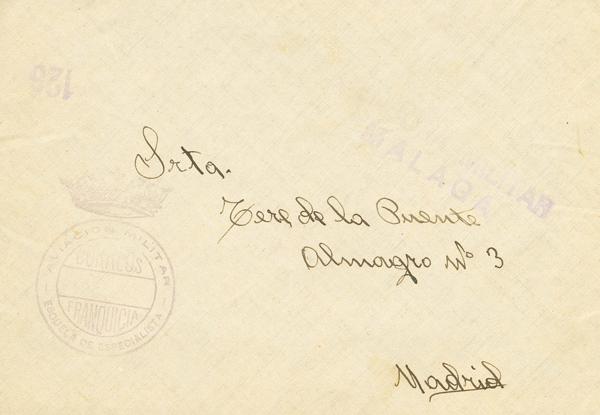 126
MILITAR
MALAGA
Srta.
Tere de la Puente
Almagro Nº 3
Madrid
AVIACION MILITAR
CORREOS
FRANQUICIA
ESCUELA DE ESPECIALISTA